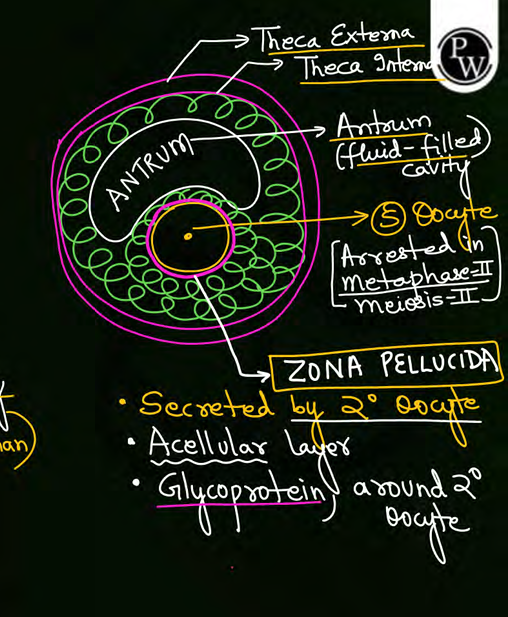 Theca Externa
Theca Intern
PW
ANTRUM
Antrum
(fluid-filled)
cavity
⑤ Oocyte
[Arrested in
metaphase-II
meiosis-II]
ZONA PELLUCIDA
• Secreted by 2° Oocyte
• Acellular layer
• Glycoprotein around 2°
Oocyte
an)